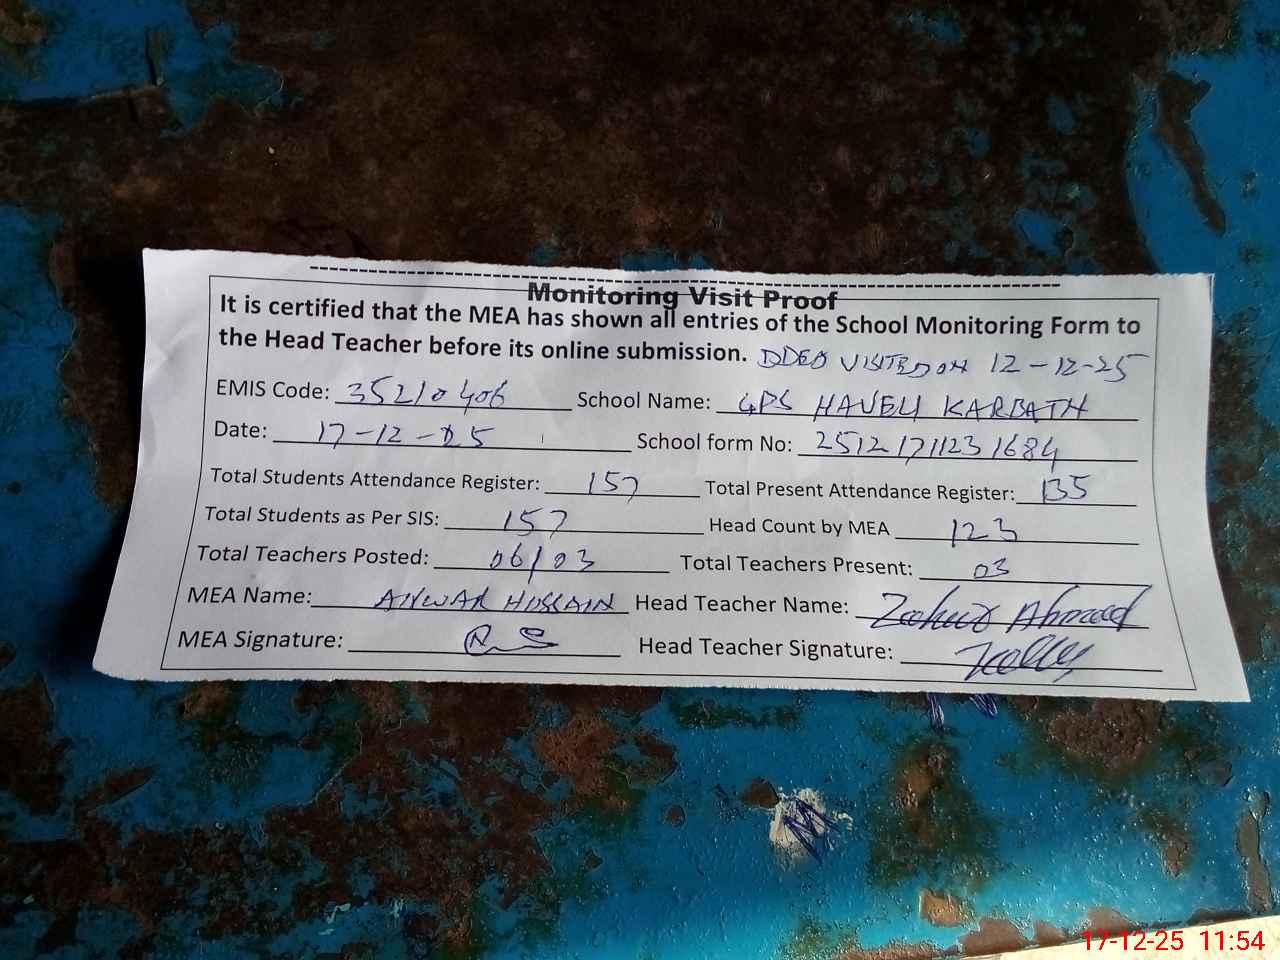 Monitoring Visit Proof
It is certified that the MEA has shown all entries of the School Monitoring Form to
the Head Teacher before its online submission. DDEO VISITED ON 12-12-25
EMIS Code: 35210406 School Name: GPS HAVELI KARBATH
Date: 17-12-25 School form No: 25121711231684
Total Students Attendance Register: 157 Total Present Attendance Register: 135
Total Students as Per SIS: 157 Head Count by MEA 123
Total Teachers Posted: 06/03 Total Teachers Present: 03
MEA Name: ANWAR HUSSAIN Head Teacher Name: Ahmad
MEA Signature: Head Teacher Signature:
M
17-12-25 11:54